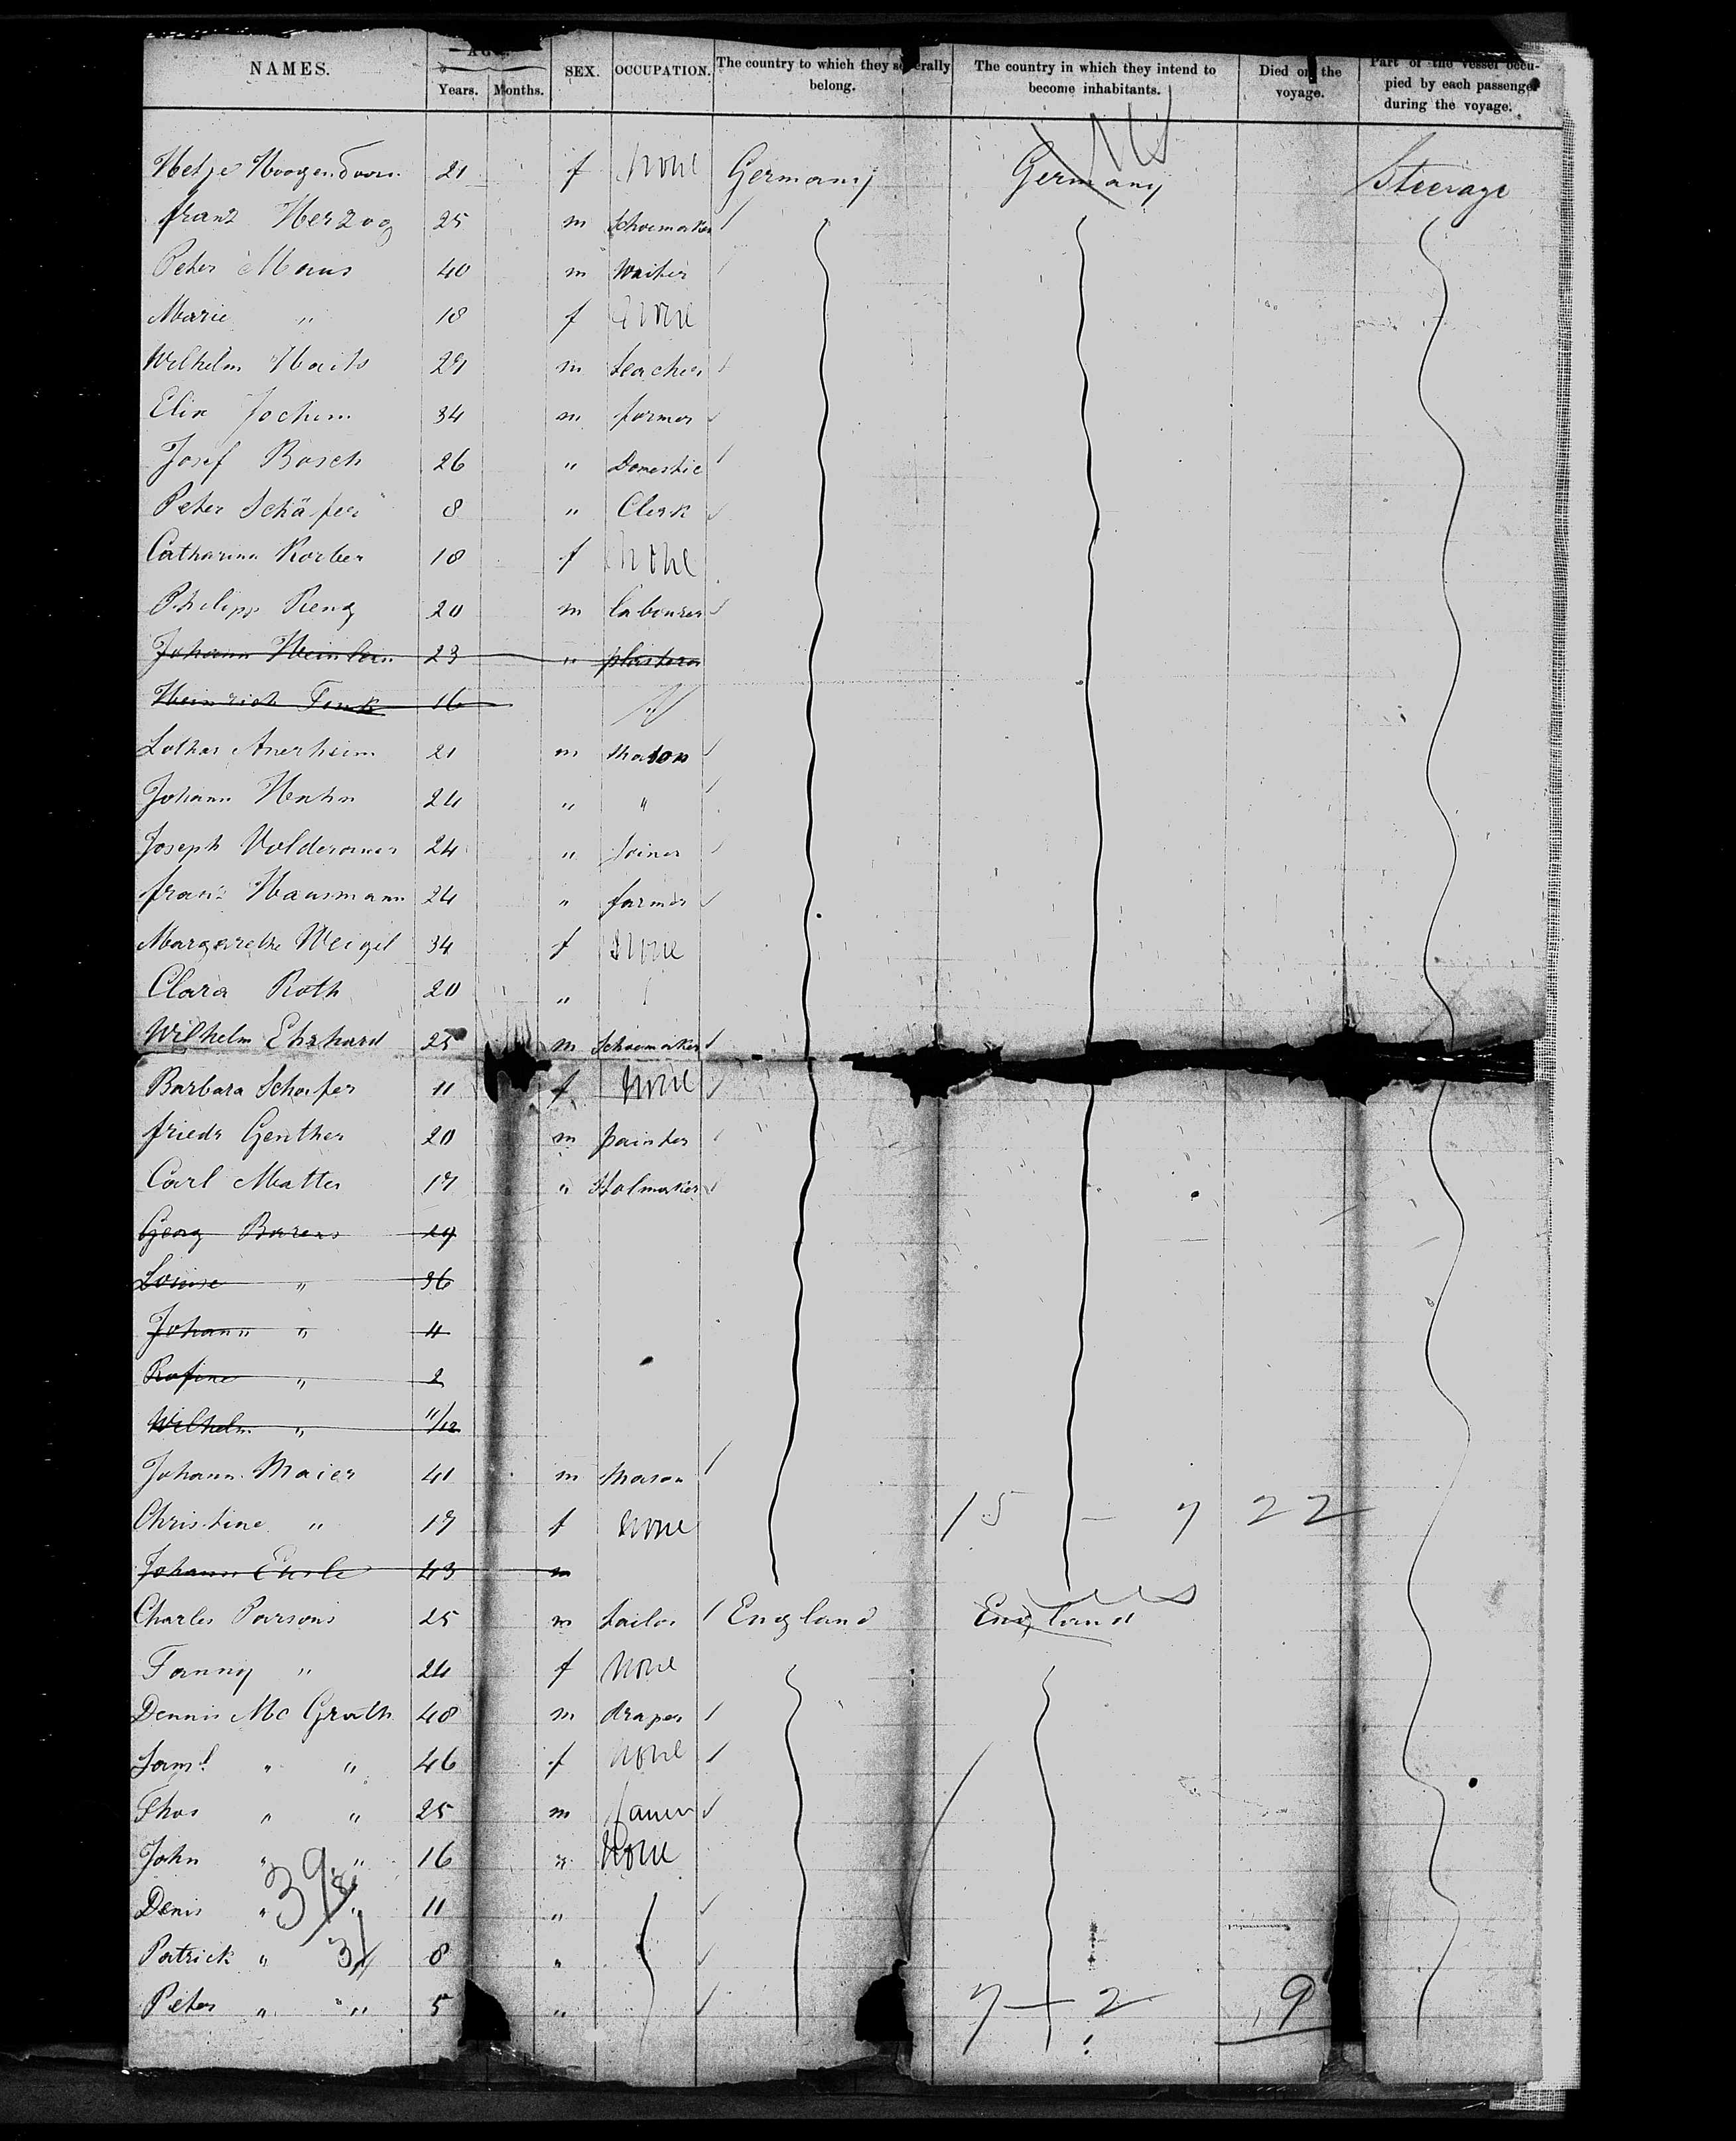 NAMES. AGE. SEX. OCCUPATION. The country to which they severally belong. The country in which they intend to become inhabitants. Died on the voyage. Part of the vessel occupied by each passenger during the voyage.
Years. Months.
Hetje Hoogendoorn 21 f None Germany Germany US Steerage
Franz Herzog 25 m Schoemaker
Peter Maus 40 m Waiter
Marie " 18 f None
Wilhelm 29 m teacher
Jochim 34 m farmer
Josef Bosch 26 " Domestic
Peter Schäfer 8 " Clerk
Catharina Korber 18 f None
Philipp Reng 20 m labourer
Johann Weinlein 23 " plasterer
Heinrich Funk 16 "
Lothar Anerheim 21 m Mason
Johann Henhn 24 " "
Joseph Volderauer 24 " Joiner
Franz Hausmann 24 " farmer
Margarethe Weigel 34 f None
Clara Roth 20 "
Wilhelm Ehrhard 25 m Schoemaker
Barbara Schaefer 11 f None
Friedr Genther 20 m painter
Carl Matter 17 "
Georg 29
Louise " 36
Johann " 4
" 2
Wilhelm " 11/12
Johann Maier 41 m Mason
Christine " 19 f None 15 - 7 22
Johann 43 m
Charles Parsons 25 m tailor England England US
Fanny " 24 f None
Dennis Mc Grath 48 m draper
" " 46 f None
Thos " " 25 m farmer
John " " 16 " None
Denis " " 11 "
Patrick " " 8 "
Peter " " 5 " 7 + 2 9
39/8
31